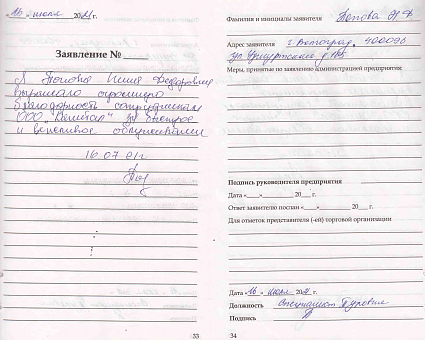 „16" июля 2021г.
Заявление №
Я Попова
выражаю огромную
благодарность сотрудникам
ООО за быстрое
и вежливое обслуживание
16.07.21г
33
Фамилия и инициалы заявителя Попова
Адрес заявителя г. Волгоград, 400096
ул.
Меры, принятые по заявлению администрацией предприятия:
Подпись руководителя предприятия
Дата «___»________20___г.
Ответ заявителю послан «___»________20___г.
Для отметок представителя (-ей) торговой организации
Дата «16» июля 2021г.
Должность Специалист
Подпись
34